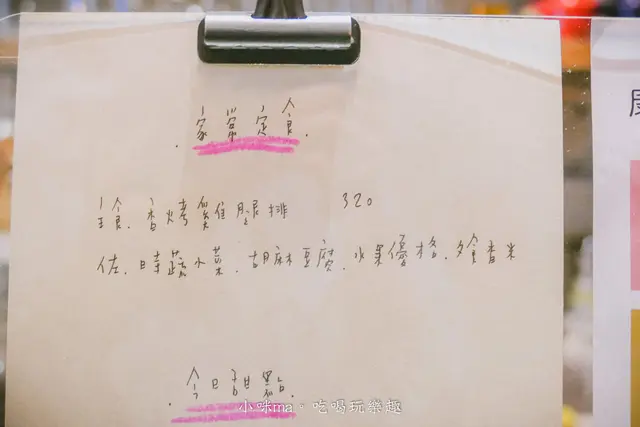 家常定食
主食.香烤雞腿排 320
佐.時蔬小菜.胡麻豆腐.水果優格.夕食香米
今日甜點
小咪ma。吃喝玩樂趣